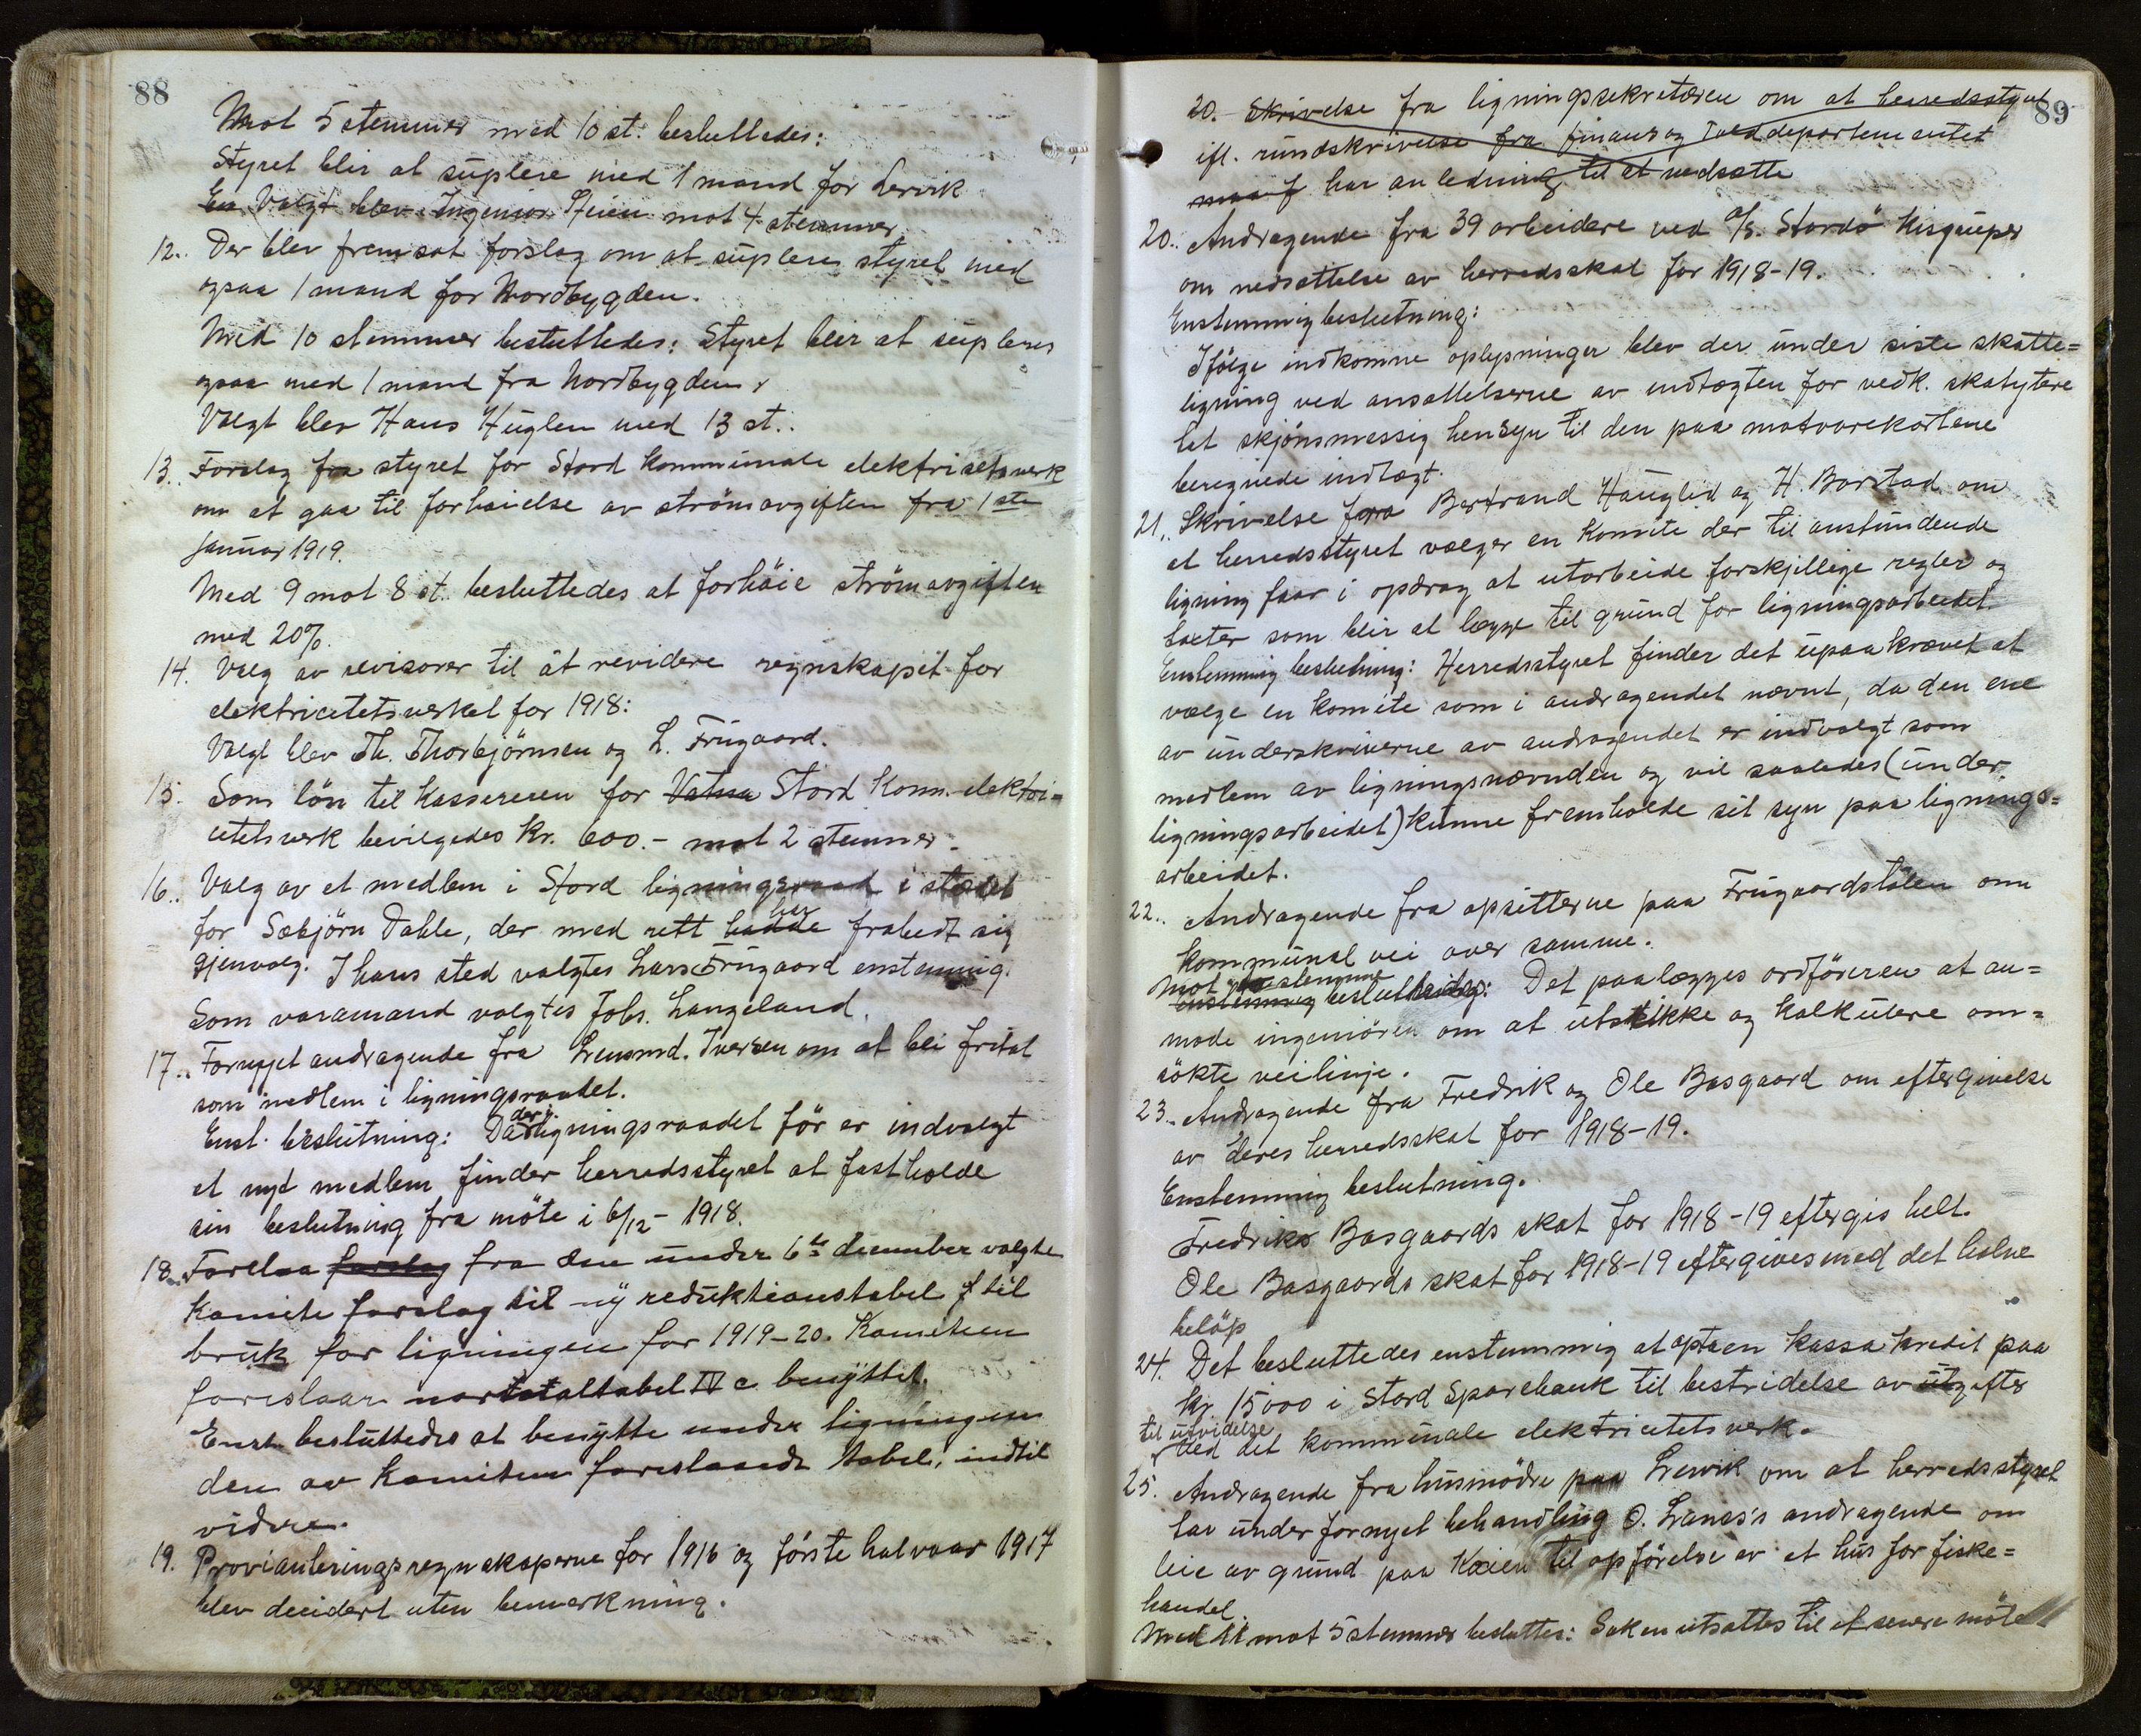 88
Mot 5 stemmer med 10 st. besluttedes:
Styret blir at suplere med 1 mand for Lervik
En Valgt blev Ingeniør Steien mot 4 stemmer
12. Der blev fremsat forslag om at suplere styret med
ogsaa 1 mand for Nordbygden.
Med 10 stemmer besluttedes: Styret blir at supleres
ogsaa med 1 mand fra Nordbygden.
Valgt blev Hans Huglen med 13 st.
13. Forslag fra styret for Stord kommunale elektricitetsverk
om at gaa til forhøielse av strömavgiften fra 1ste
januar 1919.
Med 9 mot 8 st. besluttedes at forhöie strömavgiften
med 20%.
14. Valg av revisorer til at revidere regnskapet for
elektricitetsverket for 1918:
Valgt blev Th. Thorbjörnsen og L. Frugaard.
15. Som lön til kassereren for Vatna Stord Kom. elektri=
citetsverk bevilgedes kr. 600.- mot 2 stemmer.
16. Valg av et medlem i Stord ligningsraad i stedet
for Sæbjörn Dahle, der med rett hadde har frabedt sig
gjenvalg. I hans sted valgtes Lars Frugaard enstemmig.
Som varamand valgtes Johs. Langeland.
17. Fornyet andragende fra Lensmd. Iversen om at bli fritat
som medlem i ligningsraadet.
Enst. beslutning: Da der i ligningsraadet för er indvalgt
et nyt medlem finder herredsstyret at fastholde
sin beslutning fra möte i 6/12 - 1918.
18. Forelaa forslag fra den under 6te december valgte
Komite forslag til ny reduktionstabel til
bruk for ligningen for 1919-20. Komiteen
foreslaar normaltabel IV c benyttet.
Enst. besluttedes at benytte under ligningen
den av komiteen foreslaaede tabel, indtil
videre.
19. Provianteringsregnskaperne for 1916 og förste halvaar 1917
blev decidert uten bemerkning.
89
20. Skrivelse fra ligningssekretæren om at herredsstyret
ifl. rundskrivelse fra finans og tolddepartementet
maa f har anledning til at nedsætte
20. Andragende fra 39 arbeidere ved A/S. Stordö Kisgruper
om nedsættelse av herredsskat for 1918-19.
Enstemmig beslutning:
Ifölge indkomne oplysninger blev der under siste skatte=
ligning ved ansættelserne av indtægten for vedk. skatytere
tat skjönsmessig hensyn til den paa matvarekortene
beregnede indtægt.
21. Skrivelse fra Bertrand Hauglid og H. Borstad om
at herredsstyret vælger en komite der til anstundende
ligning faar i opdrag at utarbeide forskjellige regler og
takster som blir at lægge til grund for ligningsarbeidet.
Enstemmig beslutning: Herredsstyret finder det upaakrævet at
vælge en komite som i andragendet nævnt, da den ene
av underskriverne av andragendet er indvalgt som
medlem av ligningsnævnden og vil saaledes (under
ligningsarbeidet) kunne fremholde sit syn paa lignings=
arbeidet.
22. Andragende fra opsitterne paa Frugaardstölen om
kommunal vei over samme.
Mot stemme
Enstemmig besluttedes: Det paalægges ordföreren at an=
mode ingeniören om at utstikke og kalkulere om=
sökte veilinje.
23. Andragende fra Fredrik og Ole Basgaard om eftergivelse
av deres herredsskat for 1918-19.
Enstemmig beslutning.
Fredriks Basgaards skat for 1918-19 eftergis helt.
Ole Basgaards skat for 1918-19 eftergives med det halve
belöp
24. Det besluttedes enstemmig at opta en kassakredit paa
kr 15000 i Stord Sparebank til bestridelse av utgifter
til utvidelse
ved det kommunale elektricitetsverk.
25. Andragende fra husmödre paa Lervik om at herredsstyret
tar under fornyet behandling O. Lanes's andragende om
leie av grund paa Kaien til opförelse av et hus for fiske=
handel.
Med 11 mot 5 stemmer besluttes: Saken utsættes til et senere möte